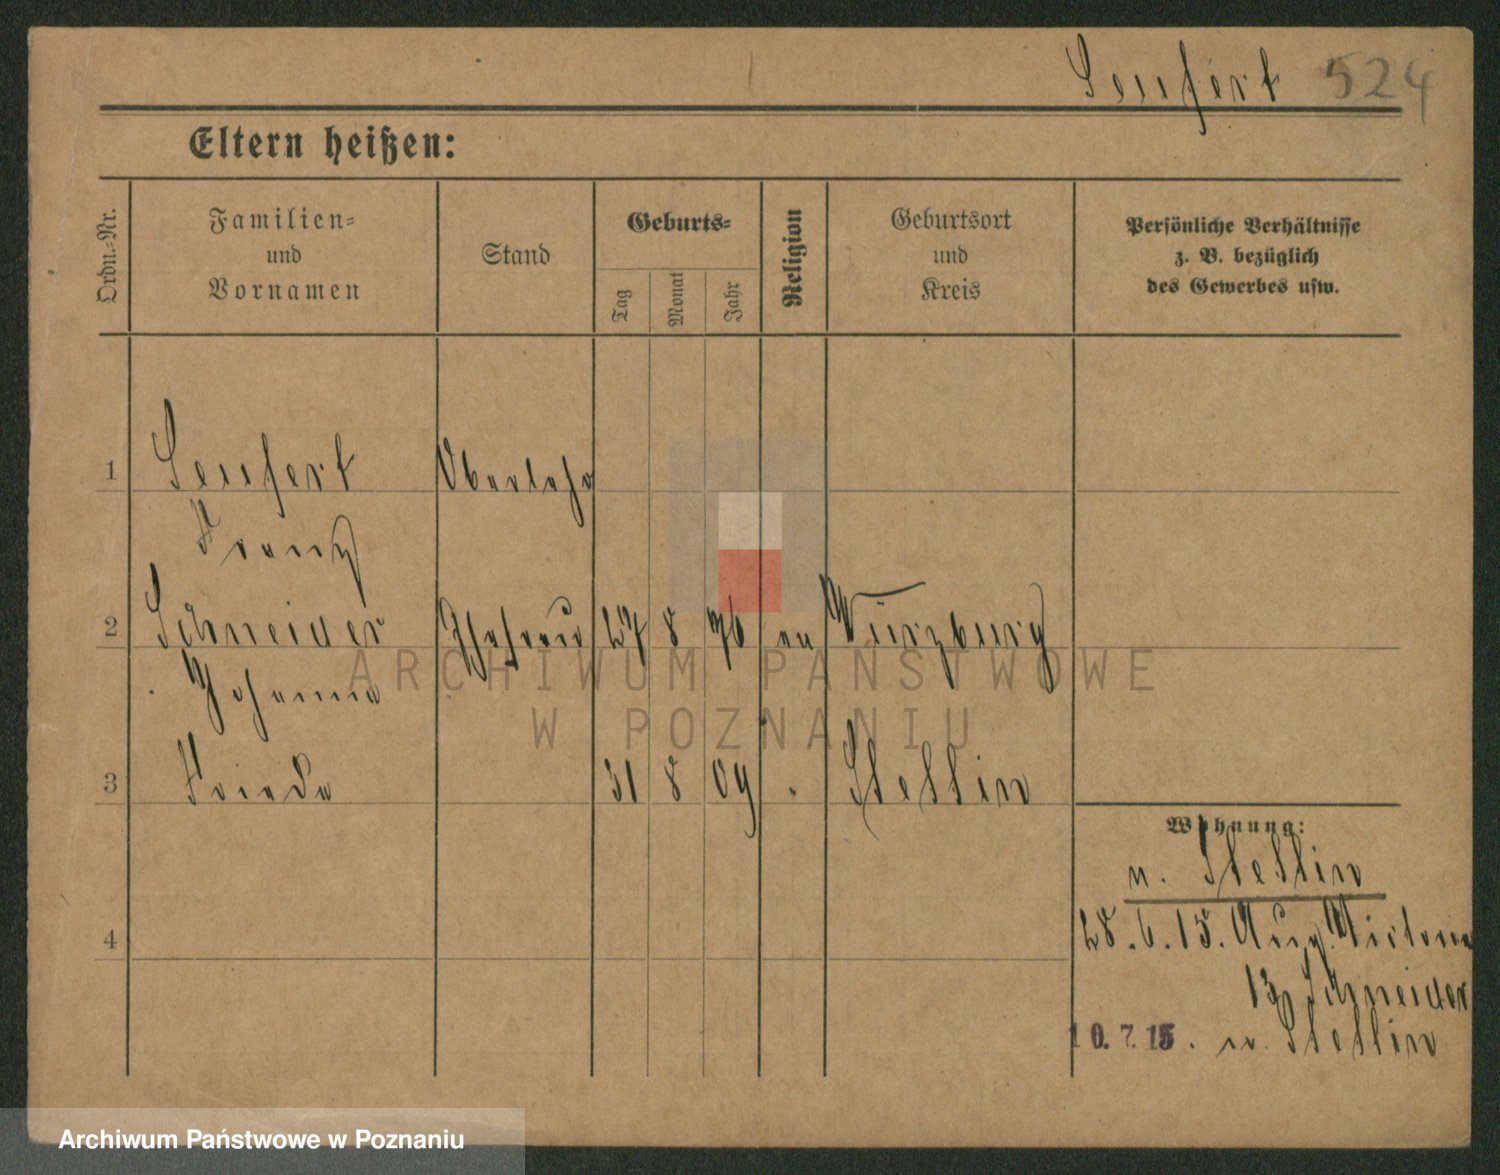 Seufert 524
Eltern heißen:
Ordn.-Nr.
Familien-
und
Vornamen
Stand
Geburts-
Tag
Monat
Jahr
Religion
Geburtsort
und
Kreis
Persönliche Verhältnisse
z. B. bezüglich
des Gewerbes usw.
1 Seufert Oberlehr
Franz
2 Schneider Ehefrau 27 8 76 ev Würzburg
Johanna
3 Frieda 31 8 09 Stettin
4
Wohnung:
n. Stettin
28.6.15. Aug. Victoria
Schneider
10.7.15. n. Stettin
ARCHIWUM PAŃSTWOWE
W POZNANIU
Archiwum Państwowe w Poznaniu